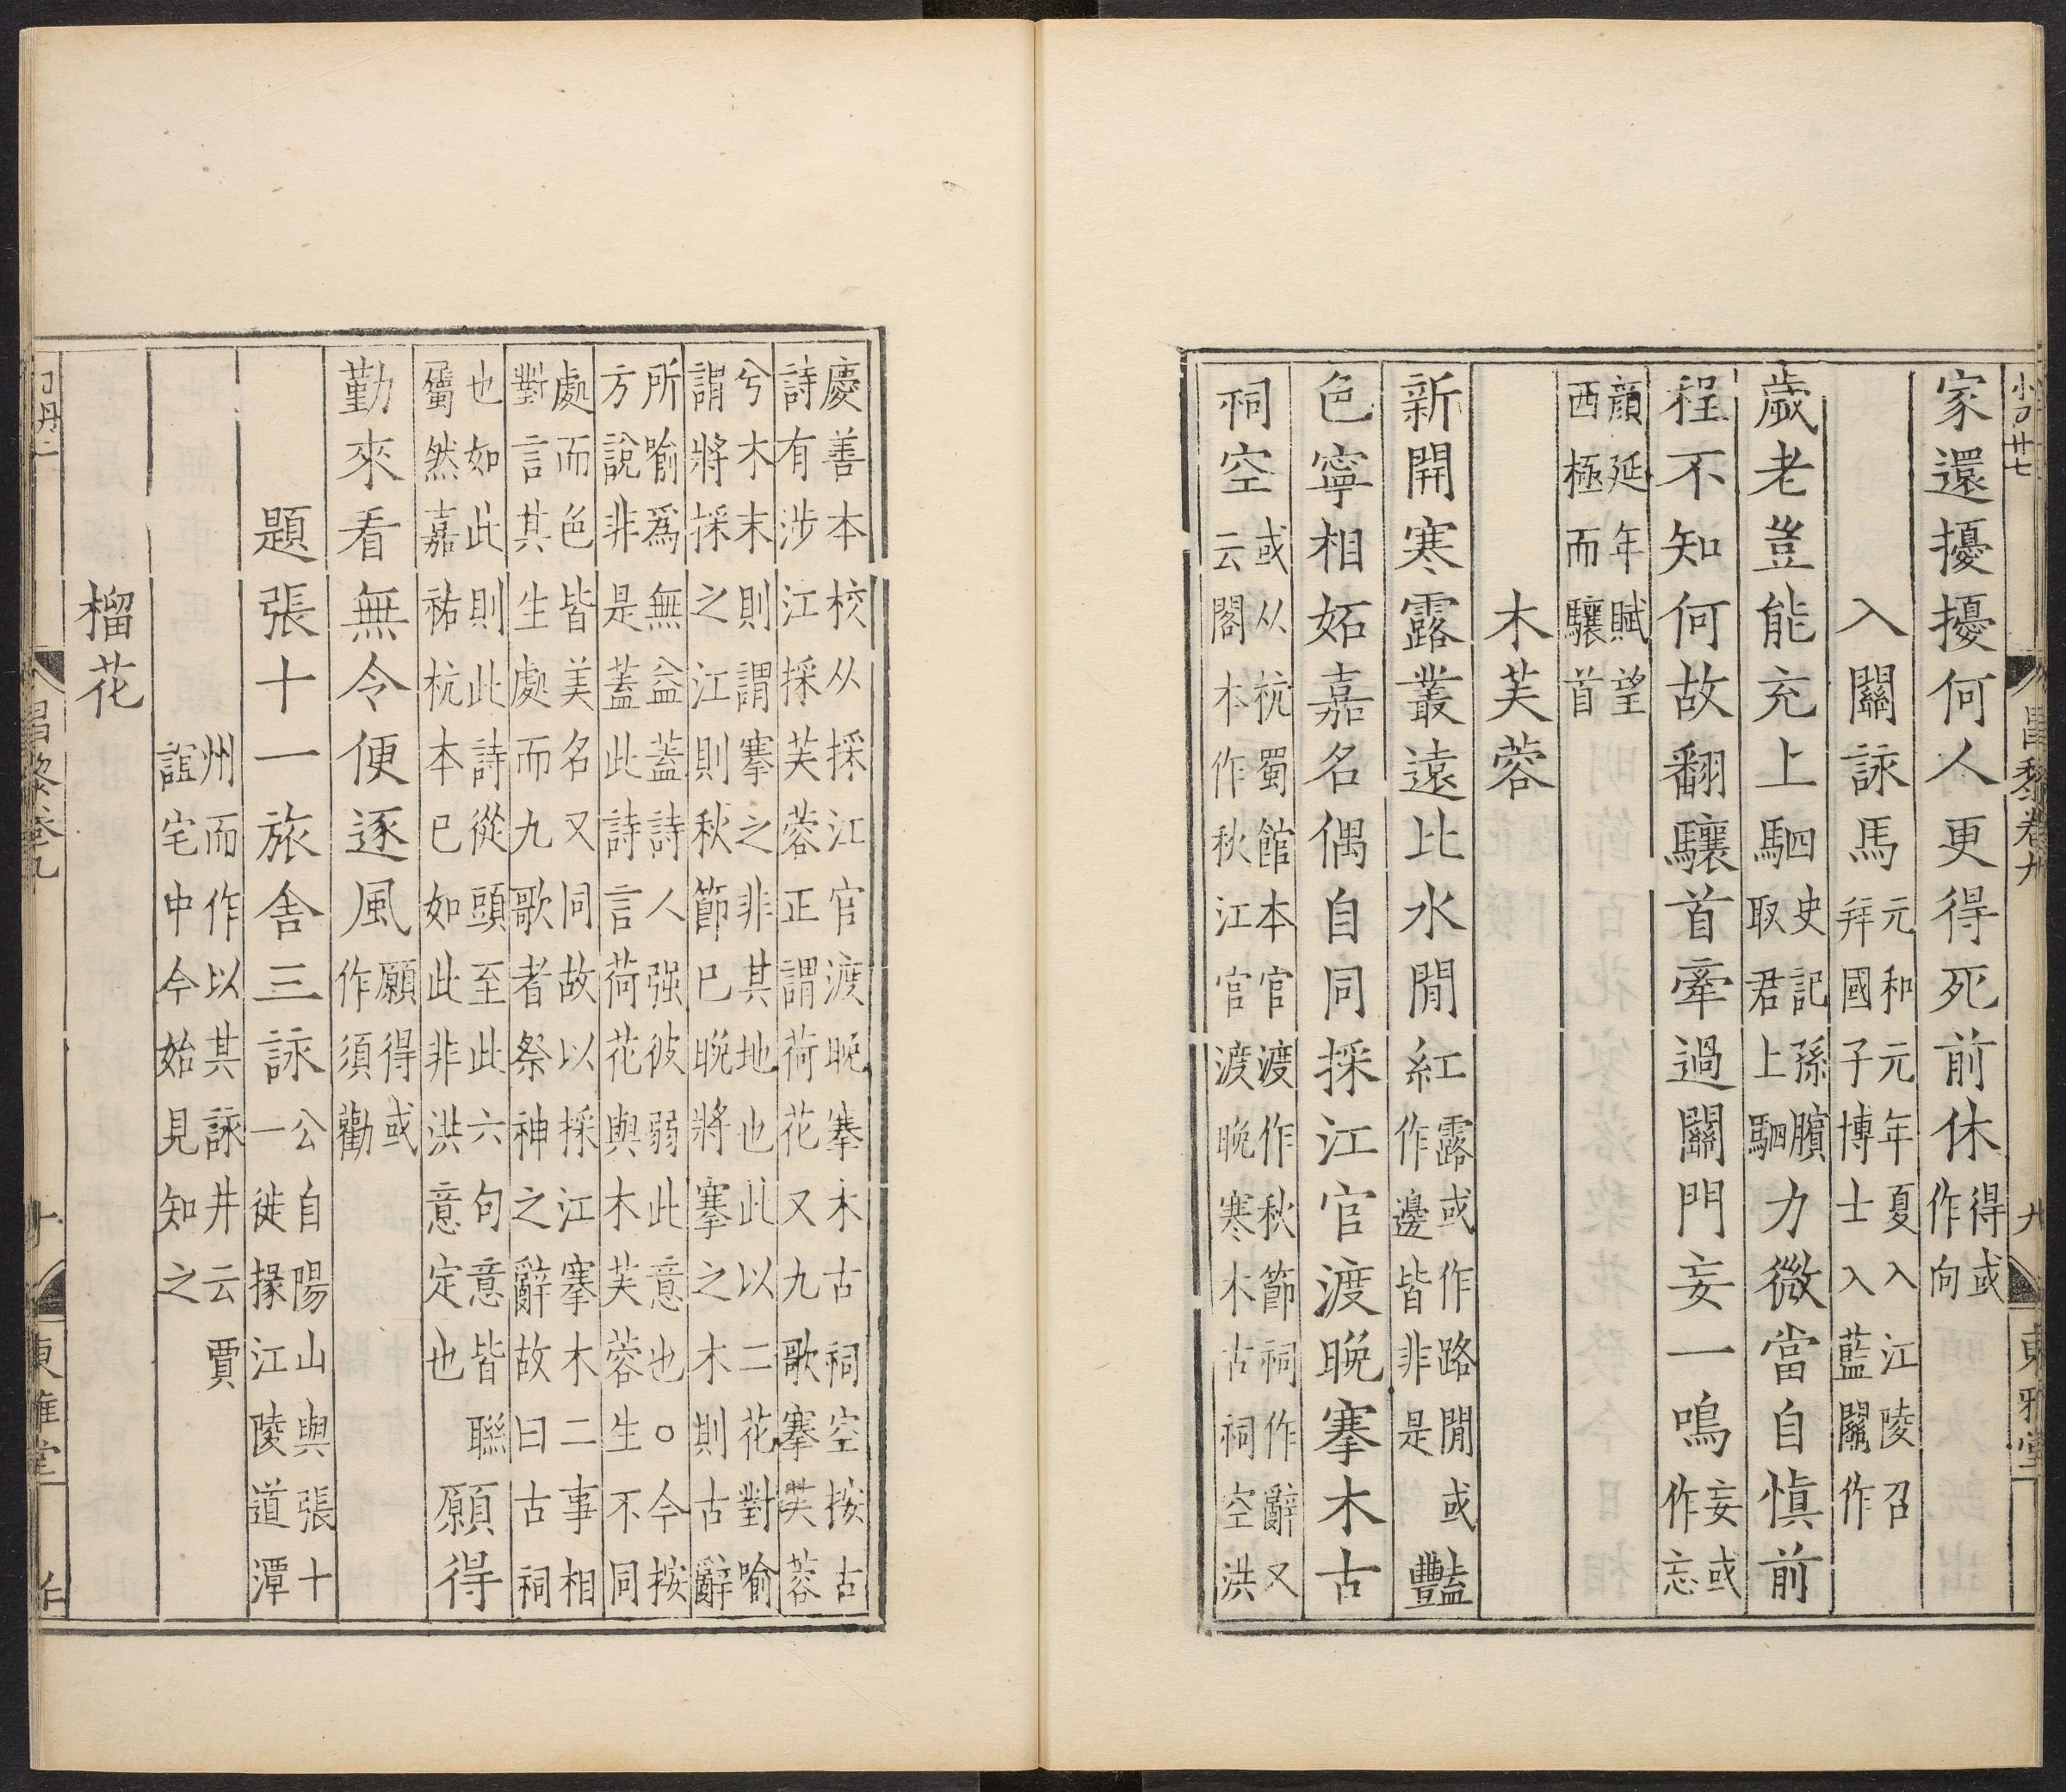 家還擾擾何人更得死前休得或作向
入關詠馬元和元年夏入江陵召拜國子博士入藍關作
歲老豈能充上駟史記孫臏取君上駟力微當自慎前
程不知何故翻驤首牽過關門妄一鳴妄或作忘
顏延年賦望西極而驤首
木芙蓉
新開寒露叢遠比水閒紅露或作路閒或作邊皆非是豔
色寧相妬嘉名偶自同採江官渡晚搴木古
祠空或从杭蜀館本官渡作秋節祠作辭又云閣本作秋江官渡晚寒木古祠空洪
慶善本校从採江官渡晚搴木古祠空按古詩有涉江採芙蓉正謂荷花又九歌搴芙蓉
兮木末則謂搴之非其地也此以二花對喻謂將採之江則秋節已晚將搴之木則古辭
所喻爲無益蓋詩人强彼弱此意也○今按方說非是蓋此詩言荷花與木芙蓉生不同
處而色皆美名又同故以採江搴木二事相對言其生處而九歌者祭神之辭故曰古祠
也如此則此詩從頭至此六句意皆聯屬然嘉祐杭本已如此非洪意定也願得
勤來看無令便逐風願得或作須勸
題張十一旅舍三詠公自陽山與張十一徙掾江陵道潭
州而作以其詠井云賈誼宅中今始見知之
榴花
昌黎卷九
九
東雅堂
昌黎卷九
十
東雅堂